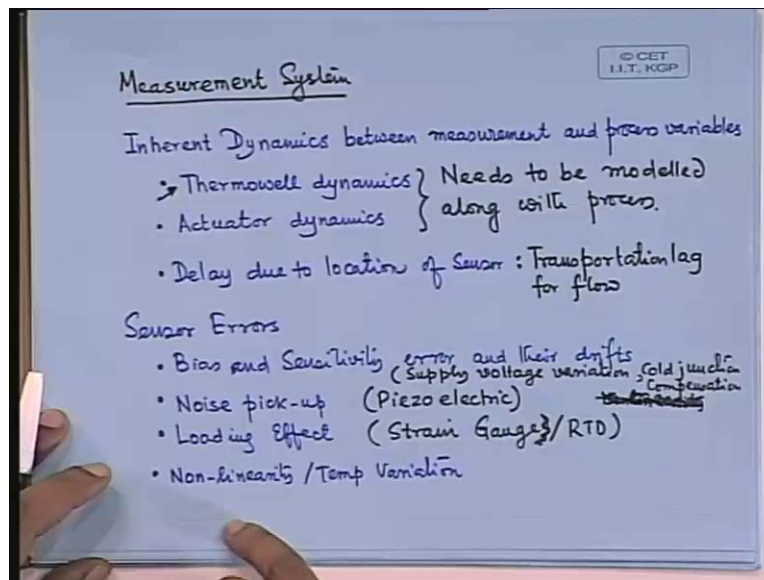 © CET
I.I.T. KGP
Measurement System
Inherent Dynamics between measurement and process variables
• Thermowell dynamics } Needs to be modelled
• Actuator dynamics } along with process.
• Delay due to location of Sensor : Transportation lag
for flow
Sensor Errors
• Bias and Sensitivity error and their drifts
(Supply voltage variation, Cold junction
Compensation
• Noise pick-up (Piezo electric)
• Loading Effect (Strain Gauge}/RTD)
• Non-linearity /Temp Variation